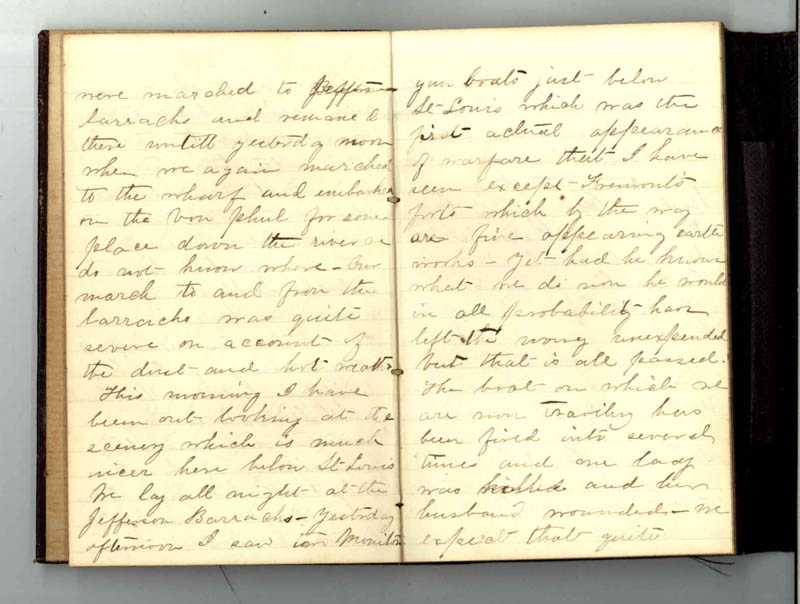 were marched to Jefferson
barracks and remained
there untill yesterday noon
when we again marched
to the wharf and embarked
on the Von Phul for some
place down the river we
do not know where – Our
march to and from the
barracks was quite
severe on account of
the dust and hot weather
This morning I have
been out looking at the
scenery which is much
nicer here below St Louis
We lay all night at the
Jefferson Barracks – Yesterday
afternoon I saw two Monitor
gun boats just below
St Louis which was the
first actual appearance
of warfare that I have
seen except Fremonts
forts which by the way
are fine appearing earth
works – Yet had he known
what we do now he would
in all probability have
left the money unexpended
but that is all passed.
The boat on which we
are now traviling has
been fired into several
times and one lady
was killed and her
husband wounded – we
expect that quite